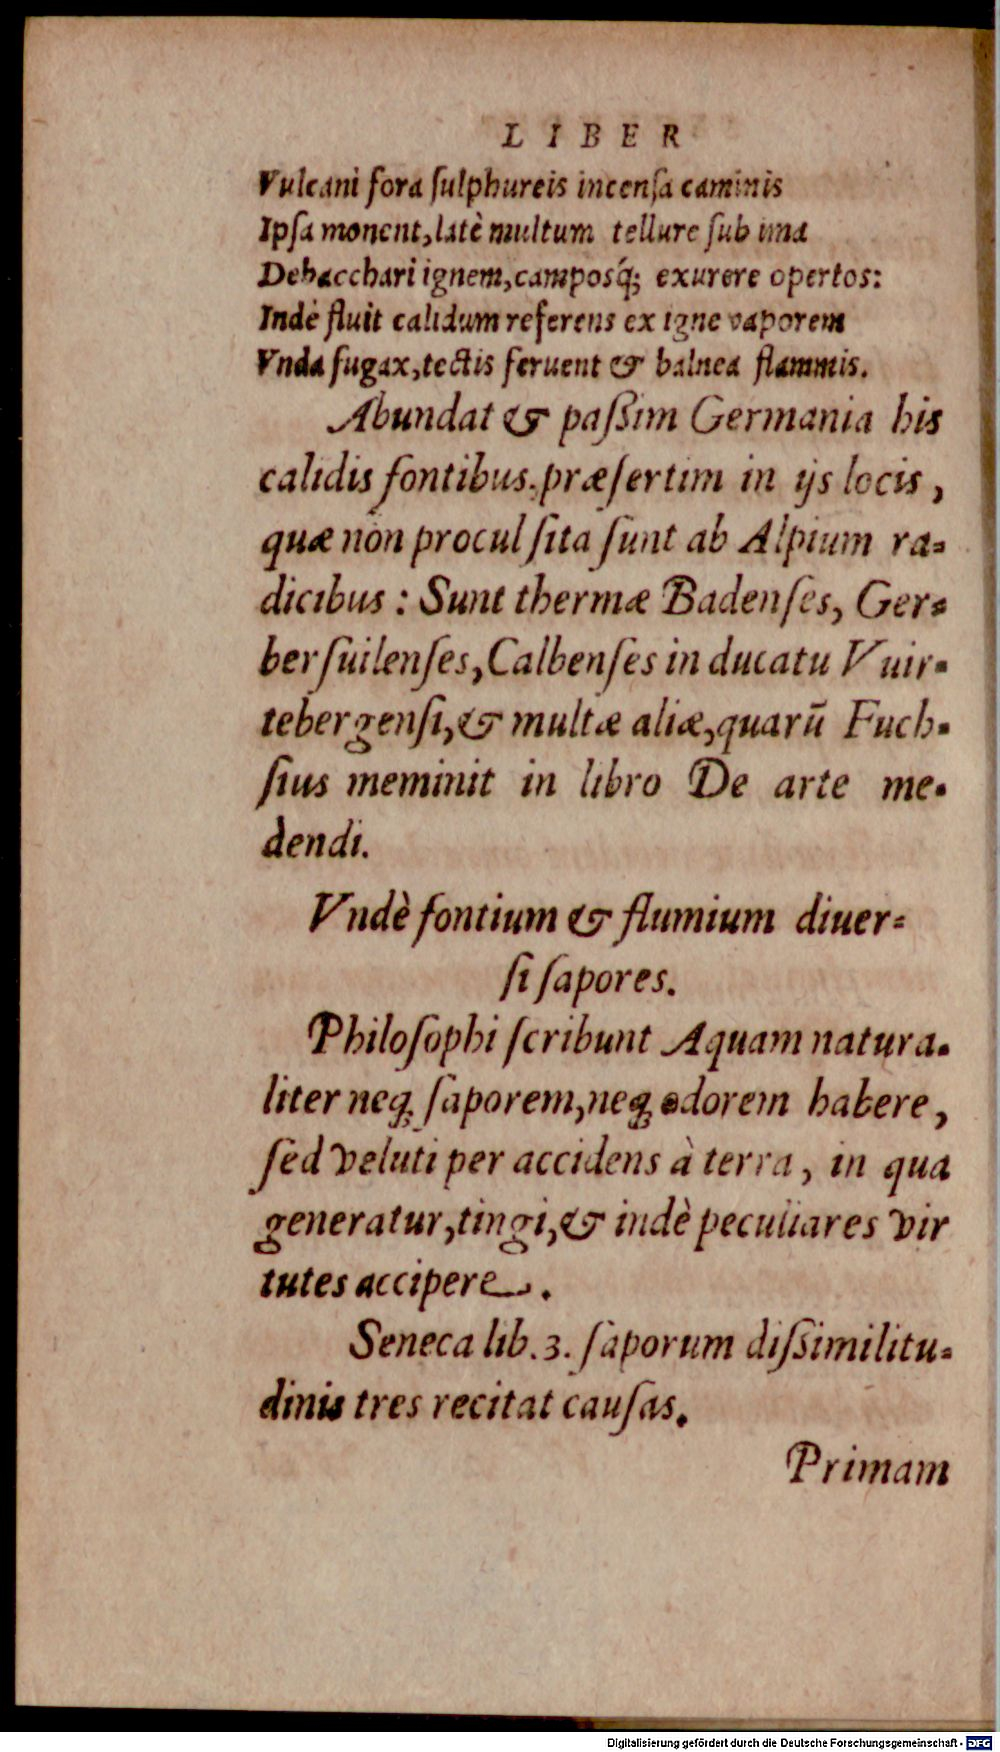 LIBER
Vulcani fora ſulphureis incenſa caminis
Ipſa monent, latè multum tellure ſub ima
Debacchari ignem, camposq́; exurere opertos:
Indè fluit calidum referens ex igne vaporem
Vnda fugax, tectis feruent & balnea flammis.
Abundat & paßim Germania his
calidis fontibus, præſertim in ijs locis,
quæ non procul ſita ſunt ab Alpium ra-
dicibus: Sunt thermæ Badenſes, Ger-
berſuilenſes, Calbenſes in ducatu Vuir-
tebergenſi, & multæ aliæ, quarū Fuch-
ſius meminit in libro De arte me-
dendi.
Vndè fontium & flumium diuer-
ſi ſapores.
Philoſophi ſcribunt Aquam natura-
liter neq; ſaporem, neq; odorem habere,
ſed veluti per accidens à terra, in qua
generatur, tingi, & indè peculiares vir
tutes accipere.
Seneca lib. 3. ſaporum dißimilitu-
dinis tres recitat cauſas.
Primam
Digitalisierung gefördert durch die Deutsche Forschungsgemeinschaft - DFG